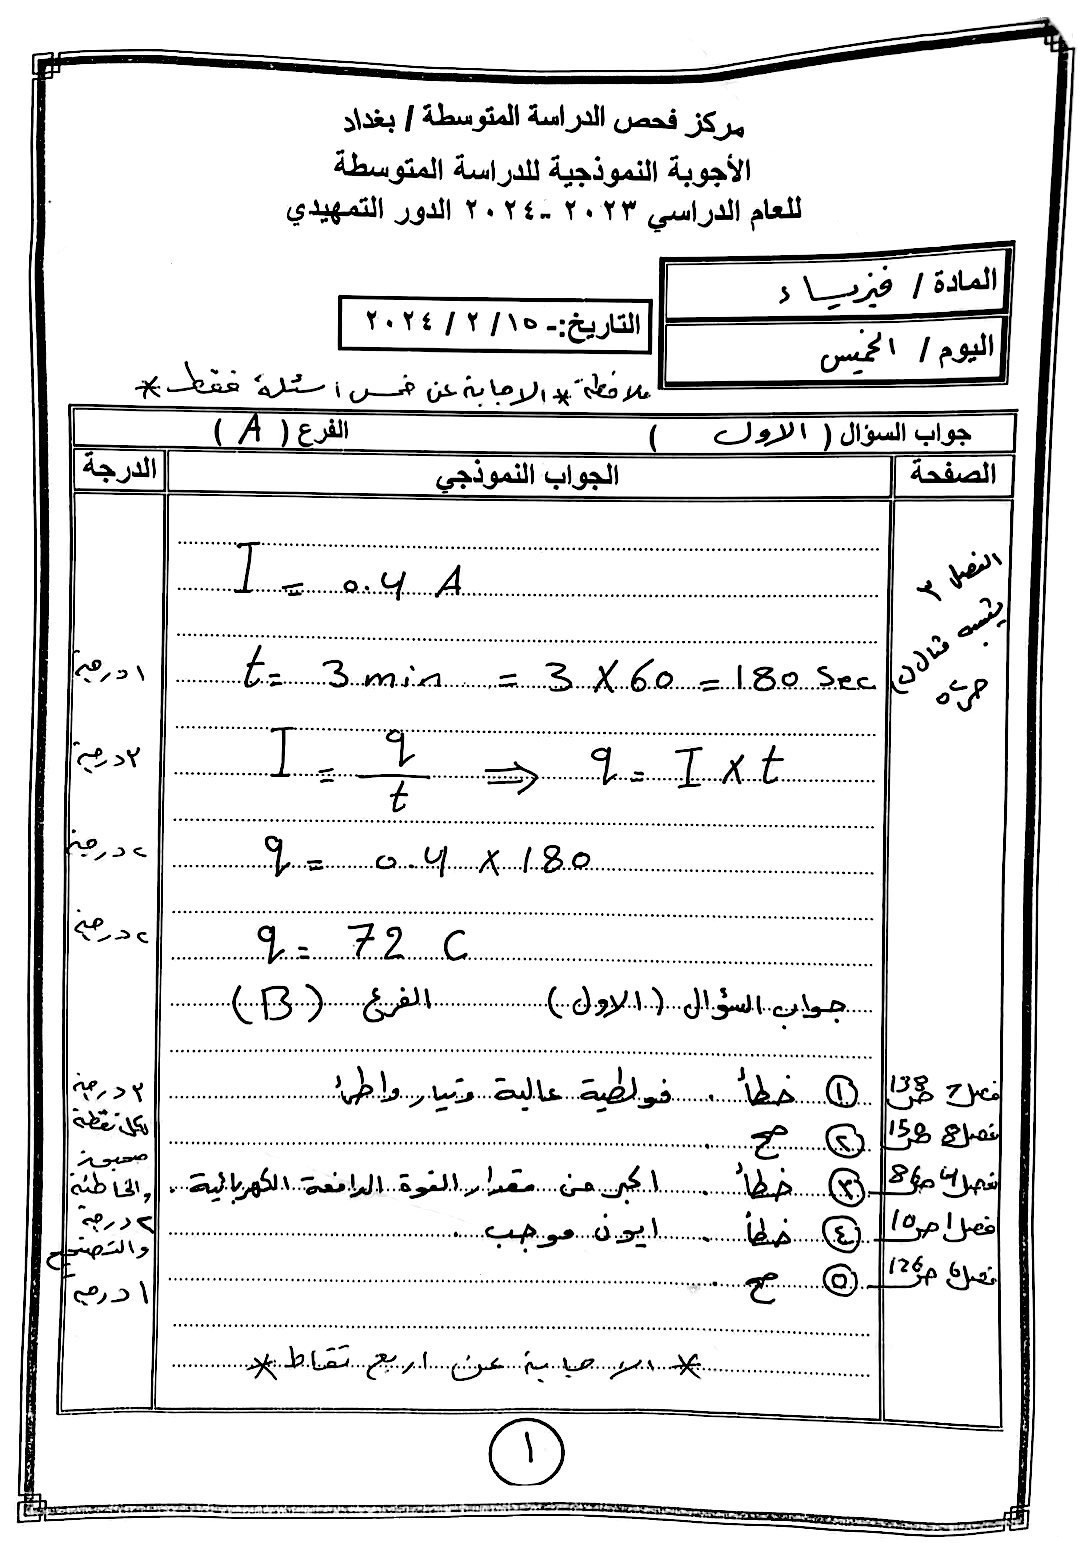 مركز فحص الدراسة المتوسطة / بغداد
الأجوبة النموذجية للدراسة المتوسطة
للعام الدراسي ٢٠٢٣ - ٢٠٢٤ الدور التمهيدي
المادة / فيزياء
اليوم / الخميس
التاريخ:- ١٥ / ٢ / ٢٠٢٤
ملاحظة * الاجابة عن خمس اسئلة فقط *
جواب السؤال ( الاول ) الفرع ( A )
الصفحة الجواب النموذجي الدرجة
I = 0.4 A
الفصل ٣
يشبه مثال (١)
ص٥٠
t = 3 min = 3 X 60 = 180 Sec ١ درجة
I = q / t ⟹ q = I x t ٣ درجة
q = 0.4 x 180 ٢ درجة
q = 72 C ٢ درجة
جواب السؤال (الاول) الفرع (B)
فصل 7 ص 138 ① خطأ . فولطية عالية وتيار واطئ ٣ درجة
فصل 8 ص 150 ② صح . لكل نقطة
فصل 4 ص 86 ③ خطأ . اكبر من مقدار القوة الدافعة الكهربائية . والخاطئة
فصل 1 ص 10 ④ خطأ . ايون موجب . ٢ درجة
والتصحيح
فصل 6 ص 126 ⑤ صح . ١ درجة
* الاجابة عن اربع نقاط *
١